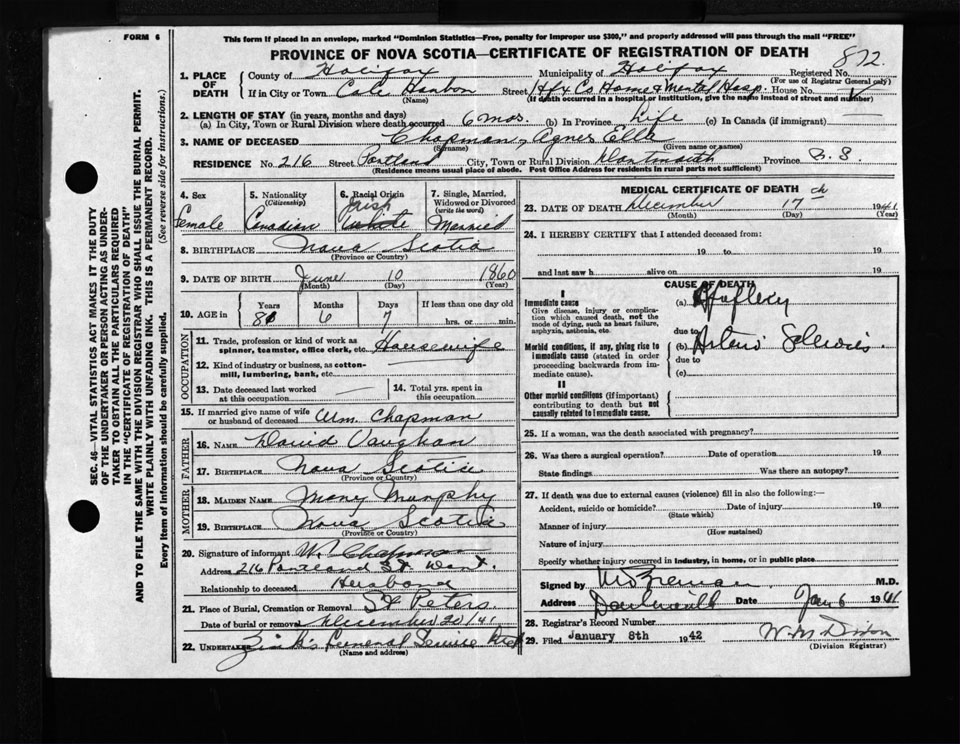 FORM 6
This form if placed in an envelope, marked "Dominion Statistics—Free, penalty for improper use $300," and properly addressed will pass through the mail "FREE"
PROVINCE OF NOVA SCOTIA—CERTIFICATE OF REGISTRATION OF DEATH
872
1. PLACE OF DEATH
County of Halifax Municipality of Halifax Registered No.
(For use of Registrar General only)
If in City or Town Cole Harbor Street Hfx Co. Home & Mental Hosp. House No.
(Name) (If death occurred in a hospital or institution, give the name instead of street and number)
2. LENGTH OF STAY (in years, months and days)
(a) In City, Town or Rural Division where death occurred 6 mos. (b) In Province Life (c) In Canada (if immigrant) —
3. NAME OF DECEASED Chapman, Agnes Ella
(Surname) (Given name or names)
RESIDENCE No. 216 Street Portland City, Town or Rural Division Dartmouth Province N.S.
(Residence means usual place of abode. Post Office Address for residents in rural parts not sufficient)
4. Sex
Female
5. Nationality
(Citizenship)
Canadian
6. Racial Origin
Irish
White
7. Single, Married, Widowed or Divorced
(write the word)
Married
8. BIRTHPLACE Nova Scotia
(Province or Country)
9. DATE OF BIRTH June 10 1860
(Month) (Day) (Year)
10. AGE in
Years Months Days If less than one day old
6 7 hrs. or min.
OCCUPATION
11. Trade, profession or kind of work as spinner, teamster, office clerk, etc. Housewife
12. Kind of industry or business, as cotton-mill, lumbering, bank, etc. —
13. Date deceased last worked at this occupation
14. Total yrs. spent in this occupation
15. If married give name of wife or husband of deceased Wm. Chapman
FATHER
16. NAME David Vaughan
17. BIRTHPLACE Nova Scotia
(Province or Country)
MOTHER
18. MAIDEN NAME Mary Murphy
19. BIRTHPLACE Nova Scotia
(Province or Country)
20. Signature of informant W. Chapman
Address 216 Portland St. Dart.
Relationship to deceased Husband
21. Place of Burial, Cremation or Removal St Peters
Date of burial or removal December 20/41
22. UNDERTAKER Zink's General Service
(Name and address)
MEDICAL CERTIFICATE OF DEATH
23. DATE OF DEATH December 17th 1941
(Month) (Day) (Year)
24. I HEREBY CERTIFY that I attended deceased from:
19 to 19
and last saw h alive on 19
CAUSE OF DEATH
I
Immediate cause
Give disease, injury or complication which caused death, not the mode of dying, such as heart failure, asphyxia, asthenia, etc.
(a)
due to
Morbid conditions, if any, giving rise to immediate cause (stated in order proceeding backwards from immediate cause).
(b)
due to
(c)
II
Other morbid conditions (if important) contributing to death but not causally related to immediate cause.
25. If a woman, was the death associated with pregnancy?
26. Was there a surgical operation? Date of operation 19
State findings Was there an autopsy?
27. If death was due to external causes (violence) fill in also the following:—
Accident, suicide or homicide? Date of injury 19
(State which)
Manner of injury
(How sustained)
Nature of injury
Specify whether injury occurred in industry, in home, or in public place
Signed by M.D.
Address Date Jan 6 1941
28. Registrar's Record Number
29. Filed January 8th 1942
(Division Registrar)
SEC. 46—VITAL STATISTICS ACT MAKES IT THE DUTY
OF THE UNDERTAKER OR PERSON ACTING AS UNDER-
TAKER TO OBTAIN ALL THE PARTICULARS REQUIRED
IN THE "CERTIFICATE OF REGISTRATION OF DEATH"
AND TO FILE THE SAME WITH THE DIVISION REGISTRAR WHO SHALL ISSUE THE BURIAL PERMIT.
WRITE PLAINLY WITH UNFADING INK. THIS IS A PERMANENT RECORD.
Every item of information should be carefully supplied. (See reverse side for instructions.)